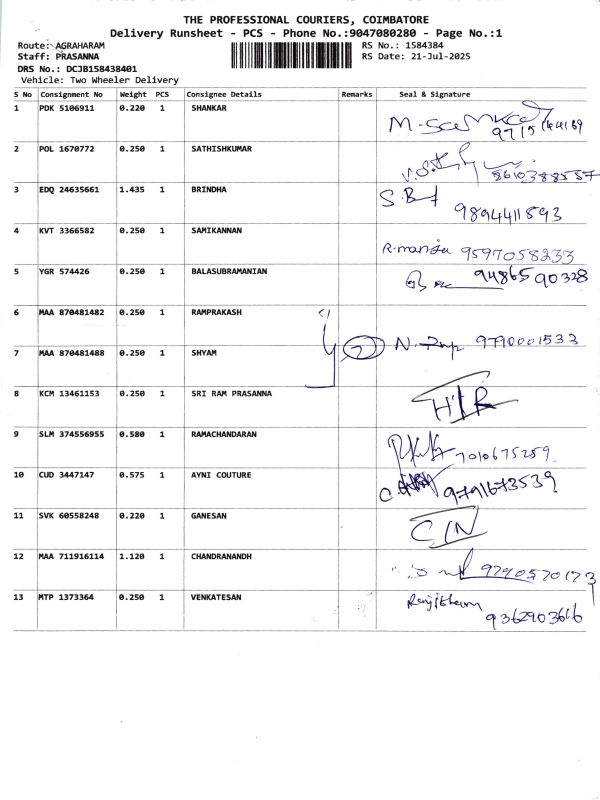 THE PROFESSIONAL COURIERS, COIMBATORE
Delivery Runsheet - PCS - Phone No.:9047080280 - Page No.:1
Route: AGRAHARAM
RS No.: 1584384
Staff: PRASANNA
RS Date: 21-Jul-2025
DRS No.: DCJB158438401
Vehicle: Two Wheeler Delivery
S No Consignment No Weight PCS Consignee Details Remarks Seal & Signature
1 PDK 5106911 0.220 1 SHANKAR
2 POL 1670772 0.250 1 SATHISHKUMAR
8610388557
3 EDQ 24635661 1.435 1 BRINDHA S.B
9894411593
4 KVT 3366582 0.250 1 SAMIKANNAN R.manju 9597058233
5 YGR 574426 0.250 1 BALASUBRAMANIAN 9486590328
6 MAA 870481482 0.250 1 RAMPRAKASH
7 MAA 870481488 0.250 1 SHYAM 2 N. 9790001533
8 KCM 13461153 0.250 1 SRI RAM PRASANNA
H/R
9 SLM 374556955 0.580 1 RAMACHANDRAN
7010675259
10 CUD 3447147 0.575 1 AYNI COUTURE
9791673539
11 SVK 60558248 0.220 1 GANESAN C/N
12 MAA 711916114 1.120 1 CHANDRANANDH
9790570173
13 MTP 1373364 0.250 1 VENKATESAN
9362903666